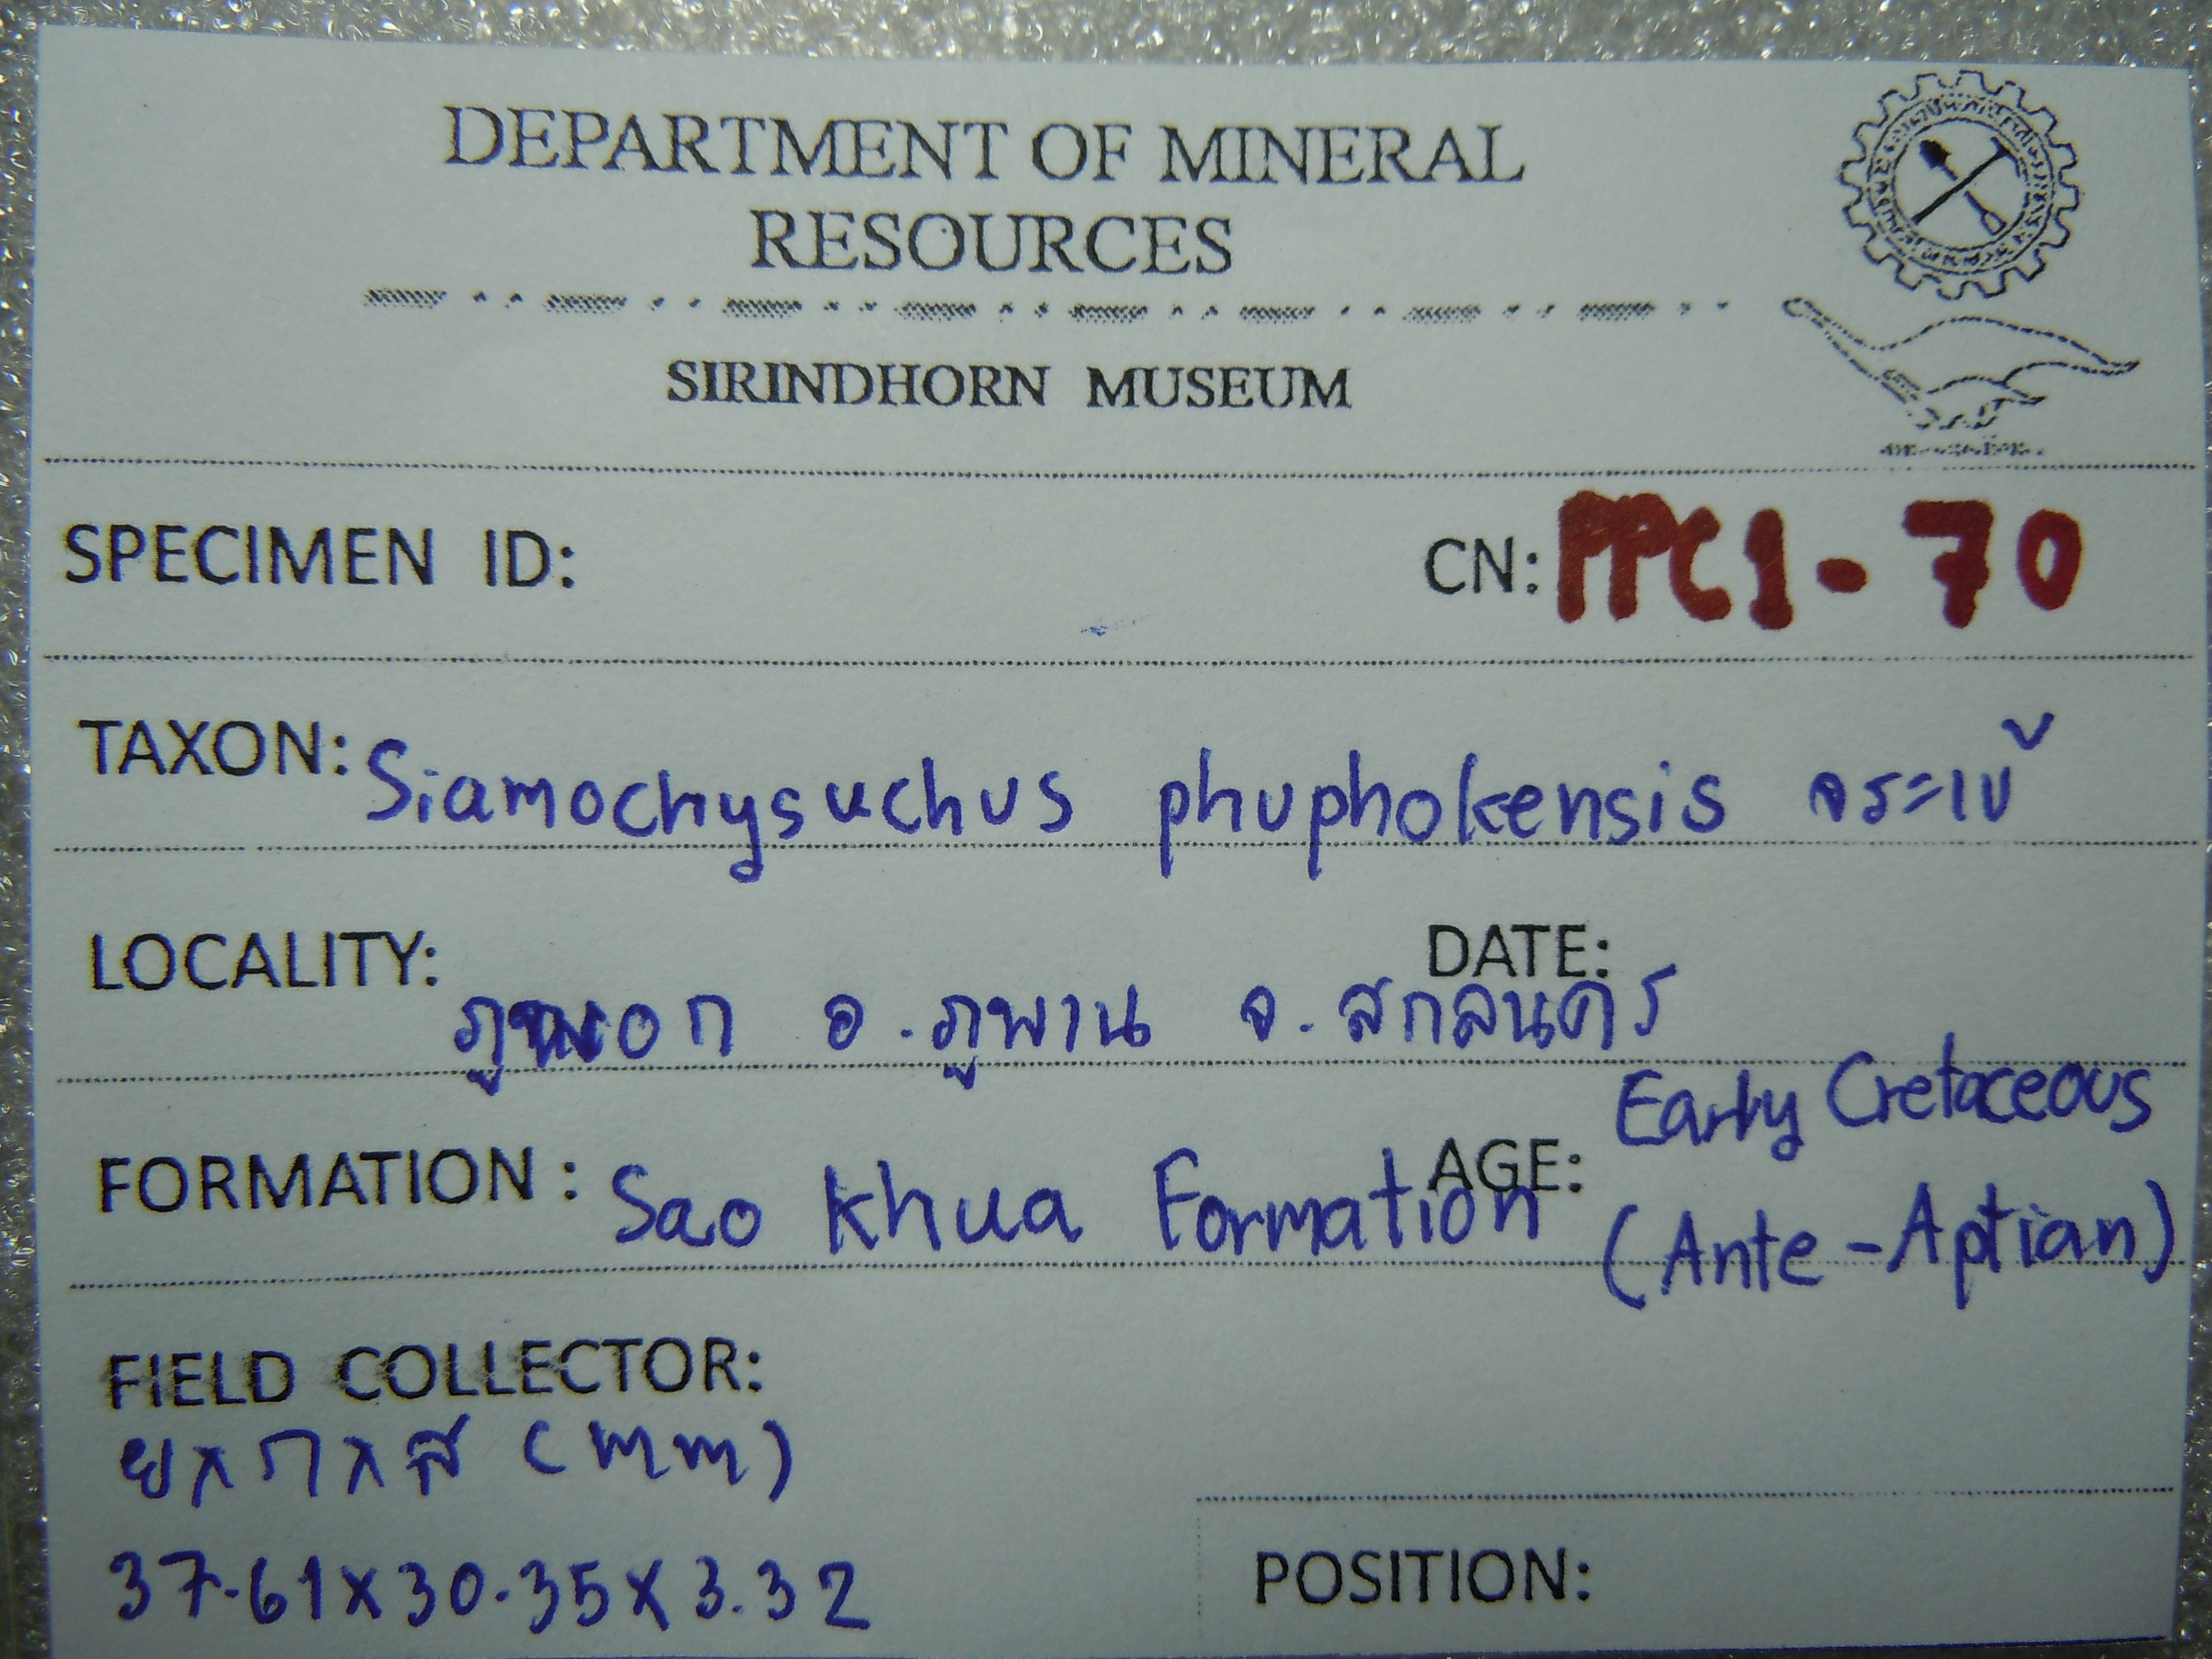 DEPARTMENT OF MINERAL
RESOURCES
SIRINDHORN MUSEUM
SPECIMEN ID: CN: PPC1-70
TAXON: Siamochysuchus phuphokensis จระเข้
LOCALITY: อ.ภูพาน จ.สกลนคร DATE:
FORMATION: Sao Khua Formation AGE: Early Cretaceous
(Ante-Aptian)
FIELD COLLECTOR:
ย x ก x ส (mm)
37.61 x 30.35 x 3.32
POSITION: